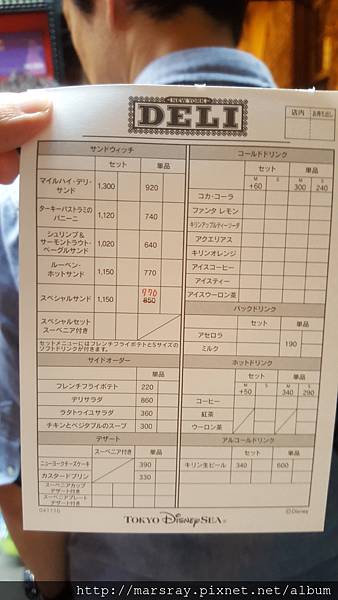 NEW YORK
DELI
店内 お持ち出し
サンドウィッチ
セット 単品
マイルハイ・デリ・サンド 1,300 920
ターキーパストラミのパニーニ 1,120 740
シュリンプ&サーモントラウト・ベーグルサンド 1,020 640
ルーベン・ホットサンド 1,150 770
スペシャルサンド 1,150 770 850
スペシャルセット スーベニア付き
セットメニューにはフレンチフライポテトとSサイズの
ソフトドリンクが付きます。
サイドオーダー
単品
フレンチフライポテト 220
デリサラダ 860
ラタトゥイユサラダ 360
チキンとベジタブルのスープ 300
デザート
スーベニア付き 単品
ニューヨークチーズケーキ 390
カスタードプリン 330
スーベニアカップ デザート付き
スーベニアプレート デザート付き
041116
コールドドリンク
セット 単品
M +60 S M 300 S 240
コカ・コーラ
ファンタ レモン
キリンアップルティーソーダ
アクエリアス
キリンオレンジ
アイスコーヒー
アイスティー
アイスウーロン茶
パックドリンク
セット 単品
アセロラ
ミルク
190
ホットドリンク
セット 単品
M +50 S M 340 S 290
コーヒー
紅茶
ウーロン茶
アルコールドリンク
セット 単品
キリン生ビール 340 600
TOKYO DISNEYSEA®
©Disney
http://marsray.pixnet.net/album